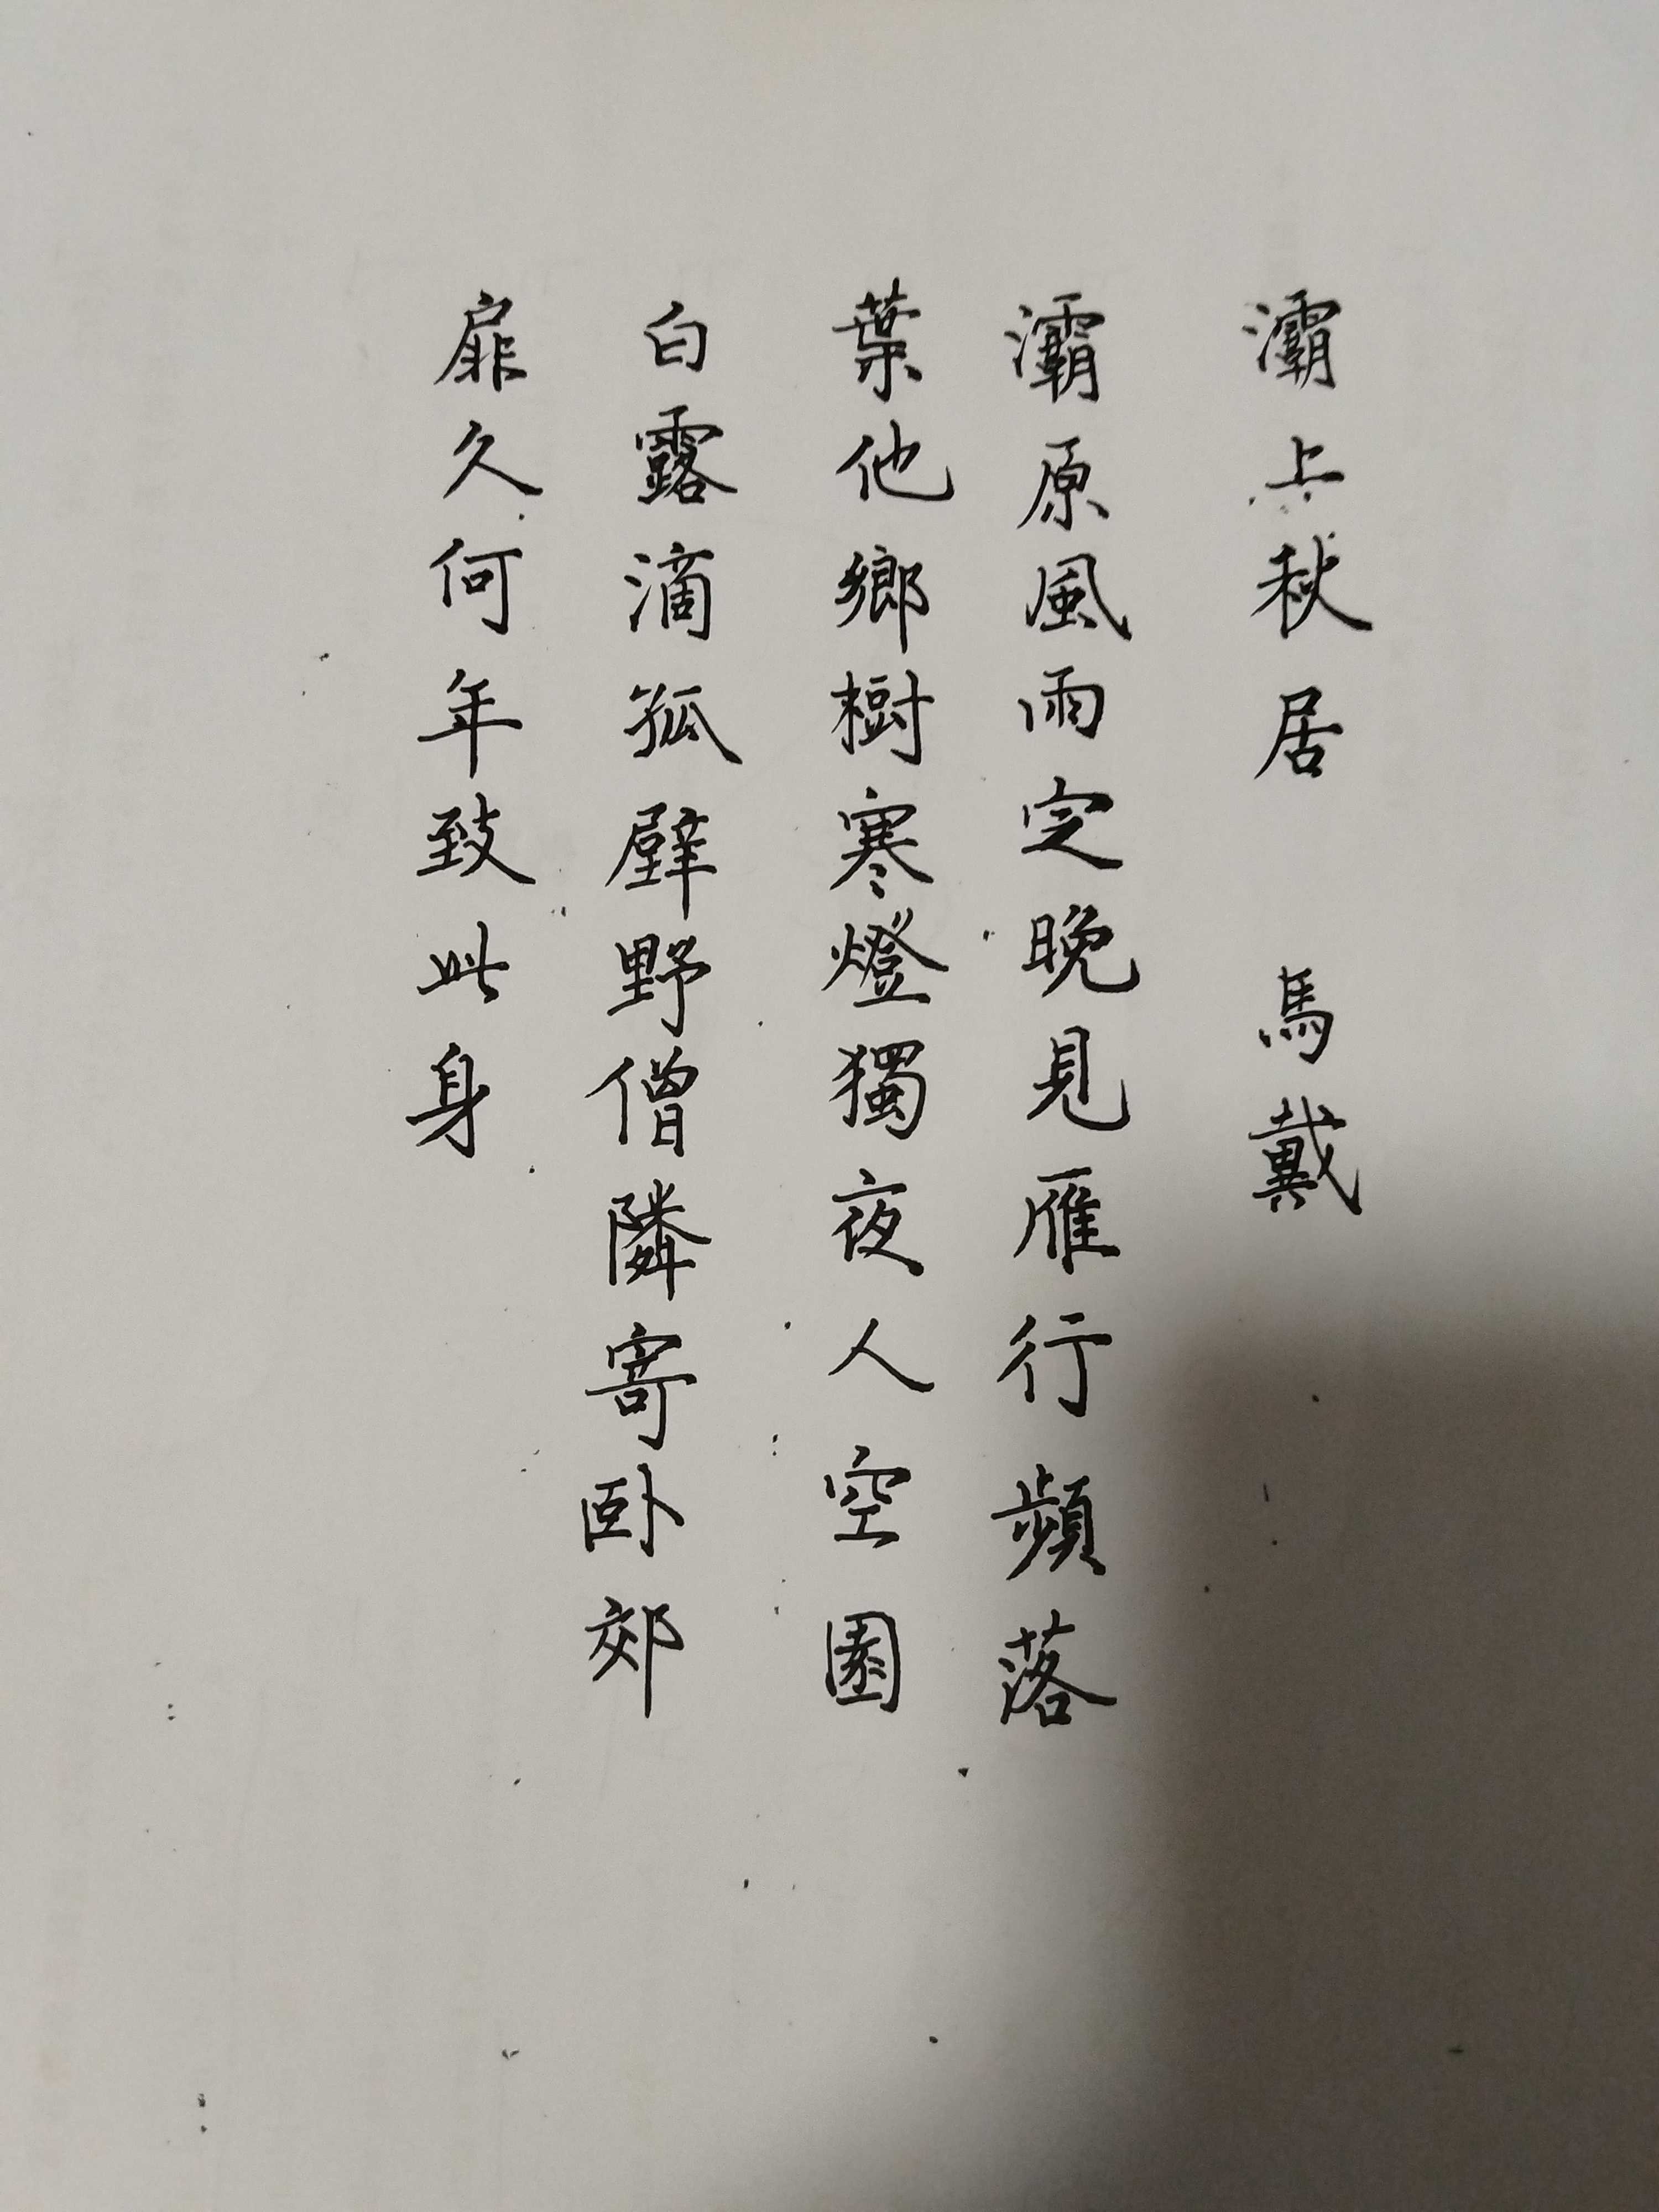 灞上秋居 馬戴
灞原風雨定晚見雁行頻落
葉他鄉樹寒燈獨夜人空園
白露滴孤壁野僧隣寄卧郊
扉久何年致此身